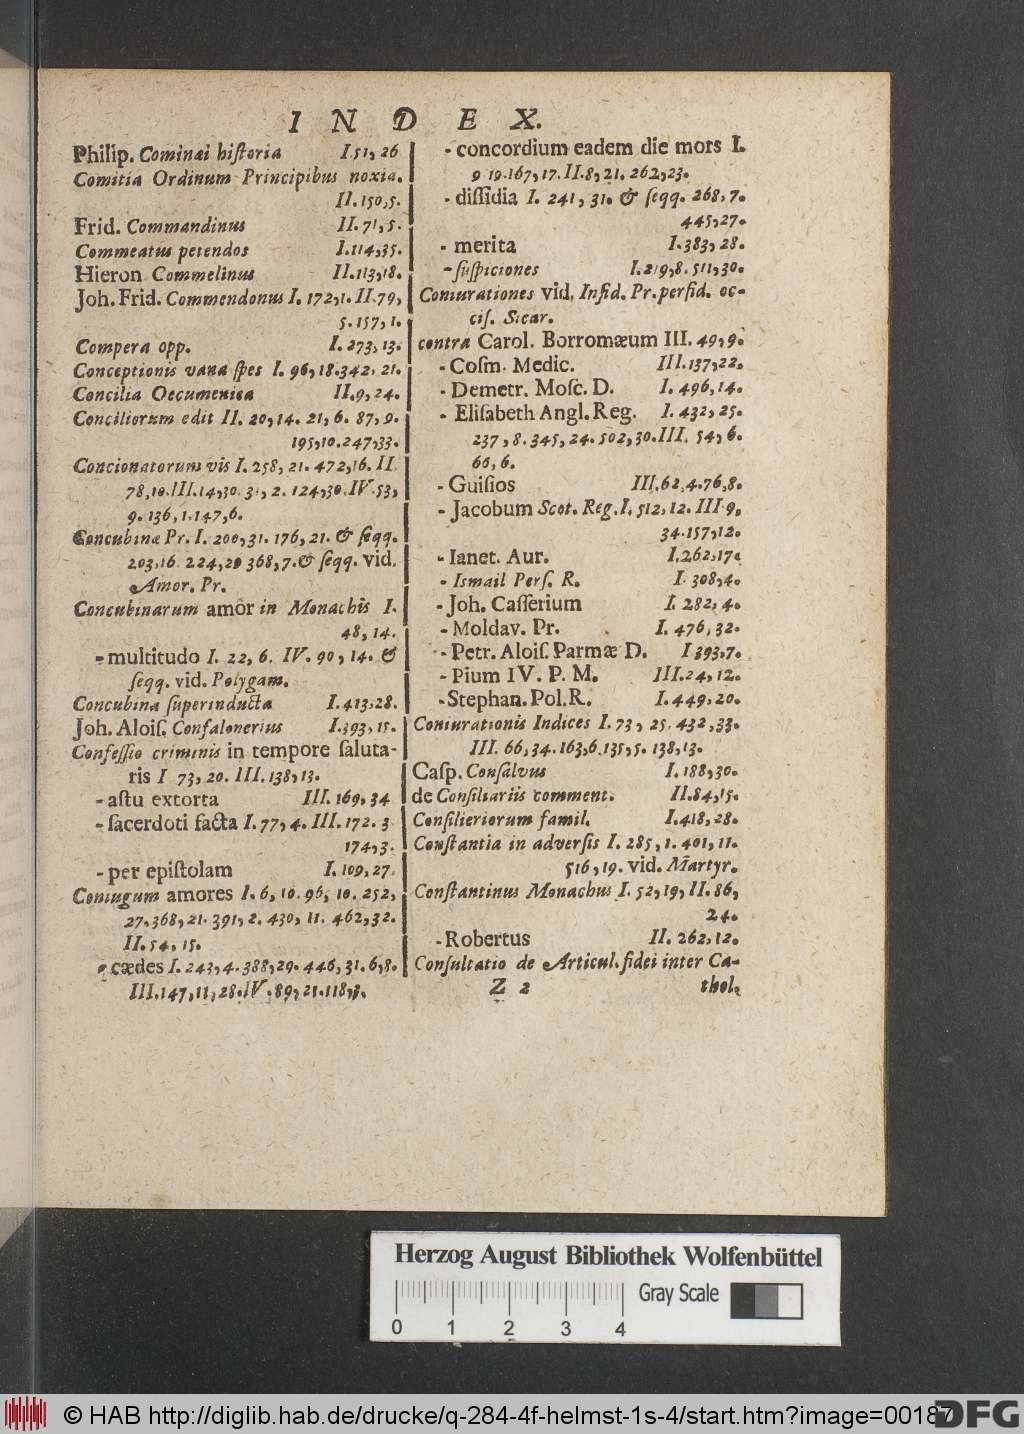 INDEX.
Philip. Cominæi historia I.51, 26
Comitia Ordinum Principibus noxia.
II.150,5.
Frid. Commandinus II.71,5.
Commeatus petendos I.114,35.
Hieron Commelinus II.113,18.
Joh. Frid. Commendonus I. 172,1. II.79,
5.157,1.
Compera opp. I.273,13.
Conceptionis vana spes I. 96,18.342,21.
Concilia Oecumenica II.9,24.
Conciliorum edit II. 20,14. 21,6. 87,9.
195,10.247,33.
Concionatorum vis I.258,21.472,16. II.
78,10.III.14,30. 31,2. 124,30.IV.53,
9. 136,1.147,6.
Concubinæ Pr. I. 200,31. 176,21. & seqq.
203,16. 224,29 368,7.& seqq. vid.
Amor. Pr.
Concubinarum amor in Monachis I.
48,14.
- multitudo I. 22, 6. IV. 90, 14. &
seqq. vid. Polygam.
Concubina superinducta I.413,28.
Joh. Alois. Confalonerius I.393,15.
Confessio criminis in tempore saluta-
ris I 73,20. III.138,13.
- astu extorta III. 169,34
- sacerdoti facta I.77,4. III. 172. 3
174,3.
- per epistolam I. 109,27.
Coniugum amores I. 6,10. 96, 10. 252,
27.368,21. 391,2. 430, 11. 462,32.
II.54, 15.
- cædes I.243,4.388,29. 446,31.6,8.
III.147,11,28.IV.89,21.118,3.
- concordium eadem die mors I.
9 19.167,17.II.8,21.262,23.
- dissidia I. 241,31. & seqq. 268,7.
445,27.
- merita I.383,28.
- suspiciones I.219,8. 511,30.
Coniurationes vid. Infid. Pr. perfid. oc-
cis. Sicar.
contra Carol. Borromæum III.49,9.
- Cosm. Medic. III.137,22.
- Demetr. Mosc. D. I. 496,14.
- Elisabeth Angl. Reg. I. 432,25.
237,8.345,24.502,30.III. 54,6.
66,6.
- Guisios III.62,4.76,8.
- Jacobum Scot. Reg. I. 512,12. III 9,
34.157,12.
- Ianet. Aur. I.262,17.
- Ismail Pers. R. I 308,4.
- Joh. Casserium I. 282, 4.
- Moldav. Pr. I. 476,32.
- Petr. Alois. Parmæ D. I 393,7.
- Pium IV. P. M. III.24,12.
- Stephan. Pol.R. I.449,20.
Coniurationis Indices I. 73, 25. 432,33.
III. 66,34.163,6.135,5. 138,13.
Casp. Consalvus I. 188,30.
de Consiliariis comment. II.84,15.
Consilieriorum famil. I.418,28.
Constantia in adversis I. 285,1.401,11.
516,19. vid. Martyr.
Constantinus Monachus I. 52,19, II. 86,
24.
- Robertus II. 262,12.
Consultatio de Articul. fidei inter Ca-
Z 2 thol.
Herzog August Bibliothek Wolfenbüttel
Gray Scale
0 1 2 3 4
© HAB http://diglib.hab.de/drucke/q-284-4f-helmst-1s-4/start.htm?image=00187
DFG